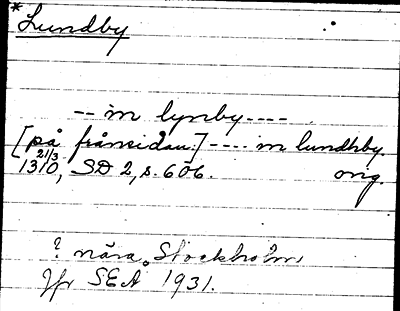 *Lundby
-- in lynby ----
[på frånsidan:] ---- in lundhby.
21/3 1310, SD 2, s. 606. orig.
? nära Stockholm,
Jfr SEA 1931.